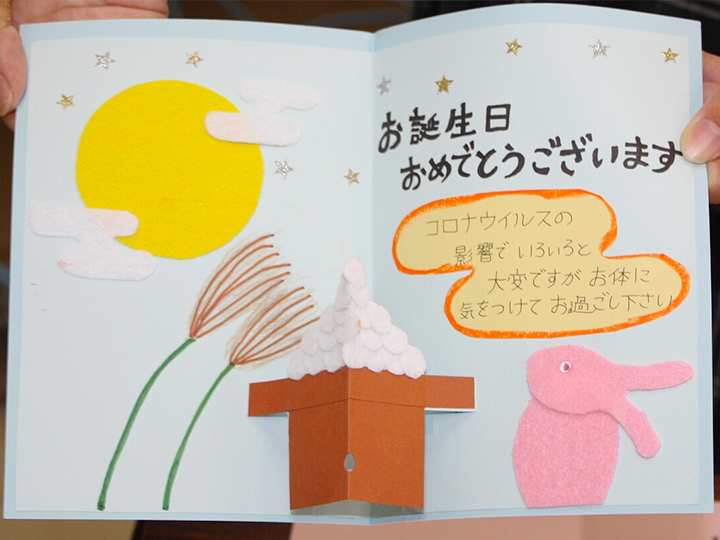 お誕生日
おめでとうございます
コロナウイルスの
影響で いろいろと
大変ですが お体に
気をつけて お過ごし下さい